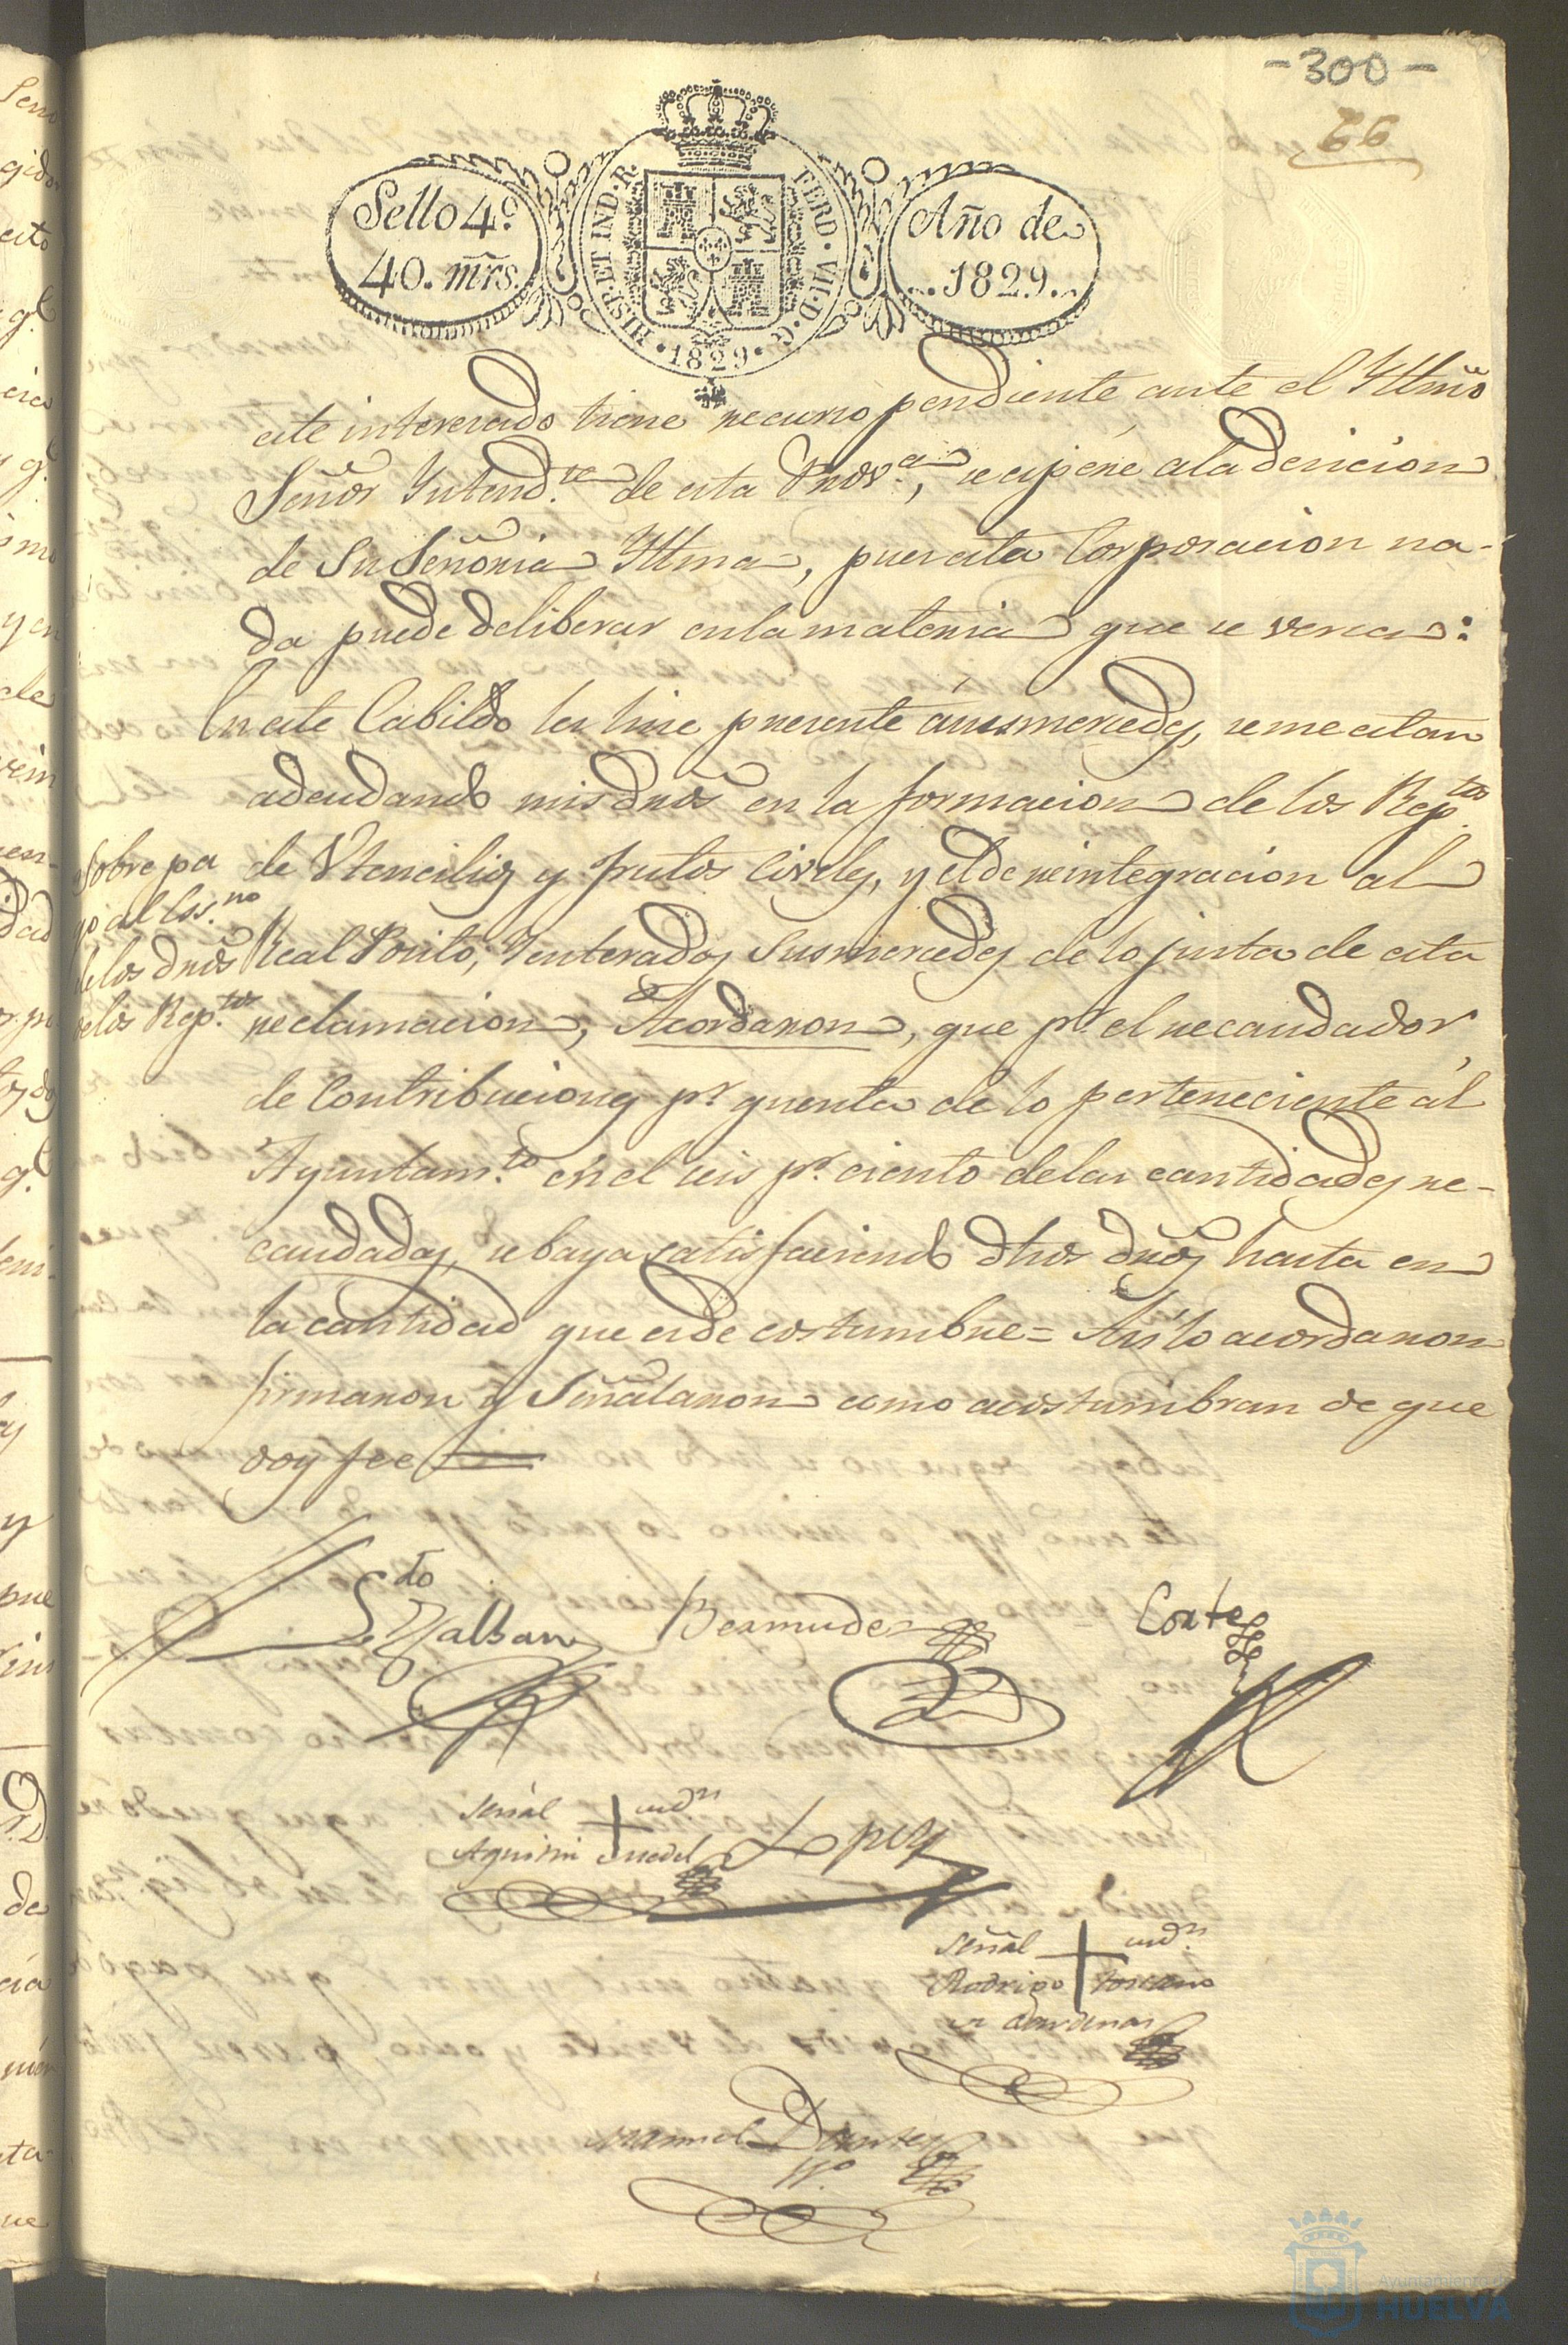 -300-
66
Sello 4º.
40. mrs.
HISP. ET IND. R.
FERD. VII. D. G.
1829
Año de
1829.
este interesado tiene recurso pendiente ante el Yltmõ
Señor Yntend.te de esta Prov.a, se espere a la decicion
de Su Señoria Yltma, pues esta Corporacion na-
da puede deliberar en la materia que se versa:
En este Cabildo les hice presente á sus mercedes, se me estan
adeudando mis dros en la formacion de los Rep.tos
de Vtencilios y frutos Civiles, y el de reintegracion al
Real Posito, Y enterados Sus mercedes de lo justa de esta
reclamacion, Acordaron, que pr. el recaudador
de Contribuciones pr. quenta de lo perteneciente ál
Ayuntam.to en el seis pr. ciento de las cantidades re-
caudadas, se baya satisfaciendo dhos dros hasta en
la cantidad que es de costumbre = Asi lo acordaron
firmaron y Señalaron como acostumbran de que
doy fee
Sobre pa
go al Ess.no
de los dros
de los Rep.tos
Ldo
Bermudez
Cortes
señal + de
Agustin
Lopez
señal + de
Rodrigo
Manuel